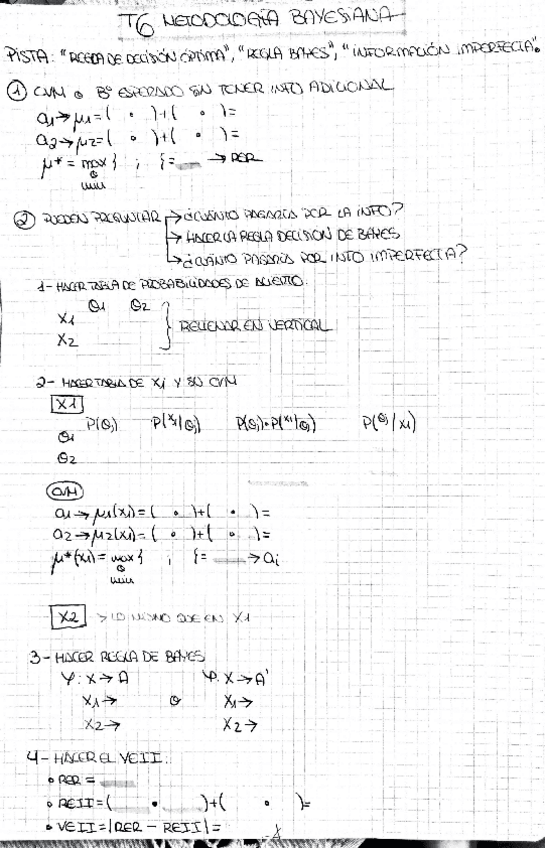 T6 METODOLOGÍA BAYESIANA
PISTA: "REGLA DE DECISIÓN ÓPTIMA", "REGLA BAYES", "INFORMACIÓN IMPERFECTA".
① CVM o Bº ESPERADO SIN TENER INFO ADICIONAL
a1→μ1=( · )+( · )=
a2→μ2=( · )+( · )=
μ* = max { ; }= __ → RER
o
min
② PUEDEN PREGUNTAR → ¿CUÁNTO PAGARÍA POR LA INFO?
→ HACER LA REGLA DECISION DE BAYES
→ ¿CUÁNTO PAGARÍA POR INFO IMPERFECTA?
1- HACER TABLA DE PROBABILIDADES DE ACIERTO.
θ1 θ2
X1
X2
} RELLENAR EN VERTICAL
2- HACER TABLA DE Xi Y SU CVM
X1
P(θj) P(X1/θj) P(θj)·P(X1/θj) P(θj/X1)
θ1
θ2
CVM
a1→ μ1(X1)=( · )+( · )=
a2→ μ2(X1)=( · )+( · )=
μ*(X1)= max { ; }= __ → ai
o
min
X2 > LO MISMO QUE EN X1
3- HACER REGLA DE BAYES
φ: X→A φ: X→A'
X1→ o X1→
X2→ X2→
4- HACER EL VEII.
• RER = __
• REII=( · )+( · )=
• VEII=|RER - REII|=